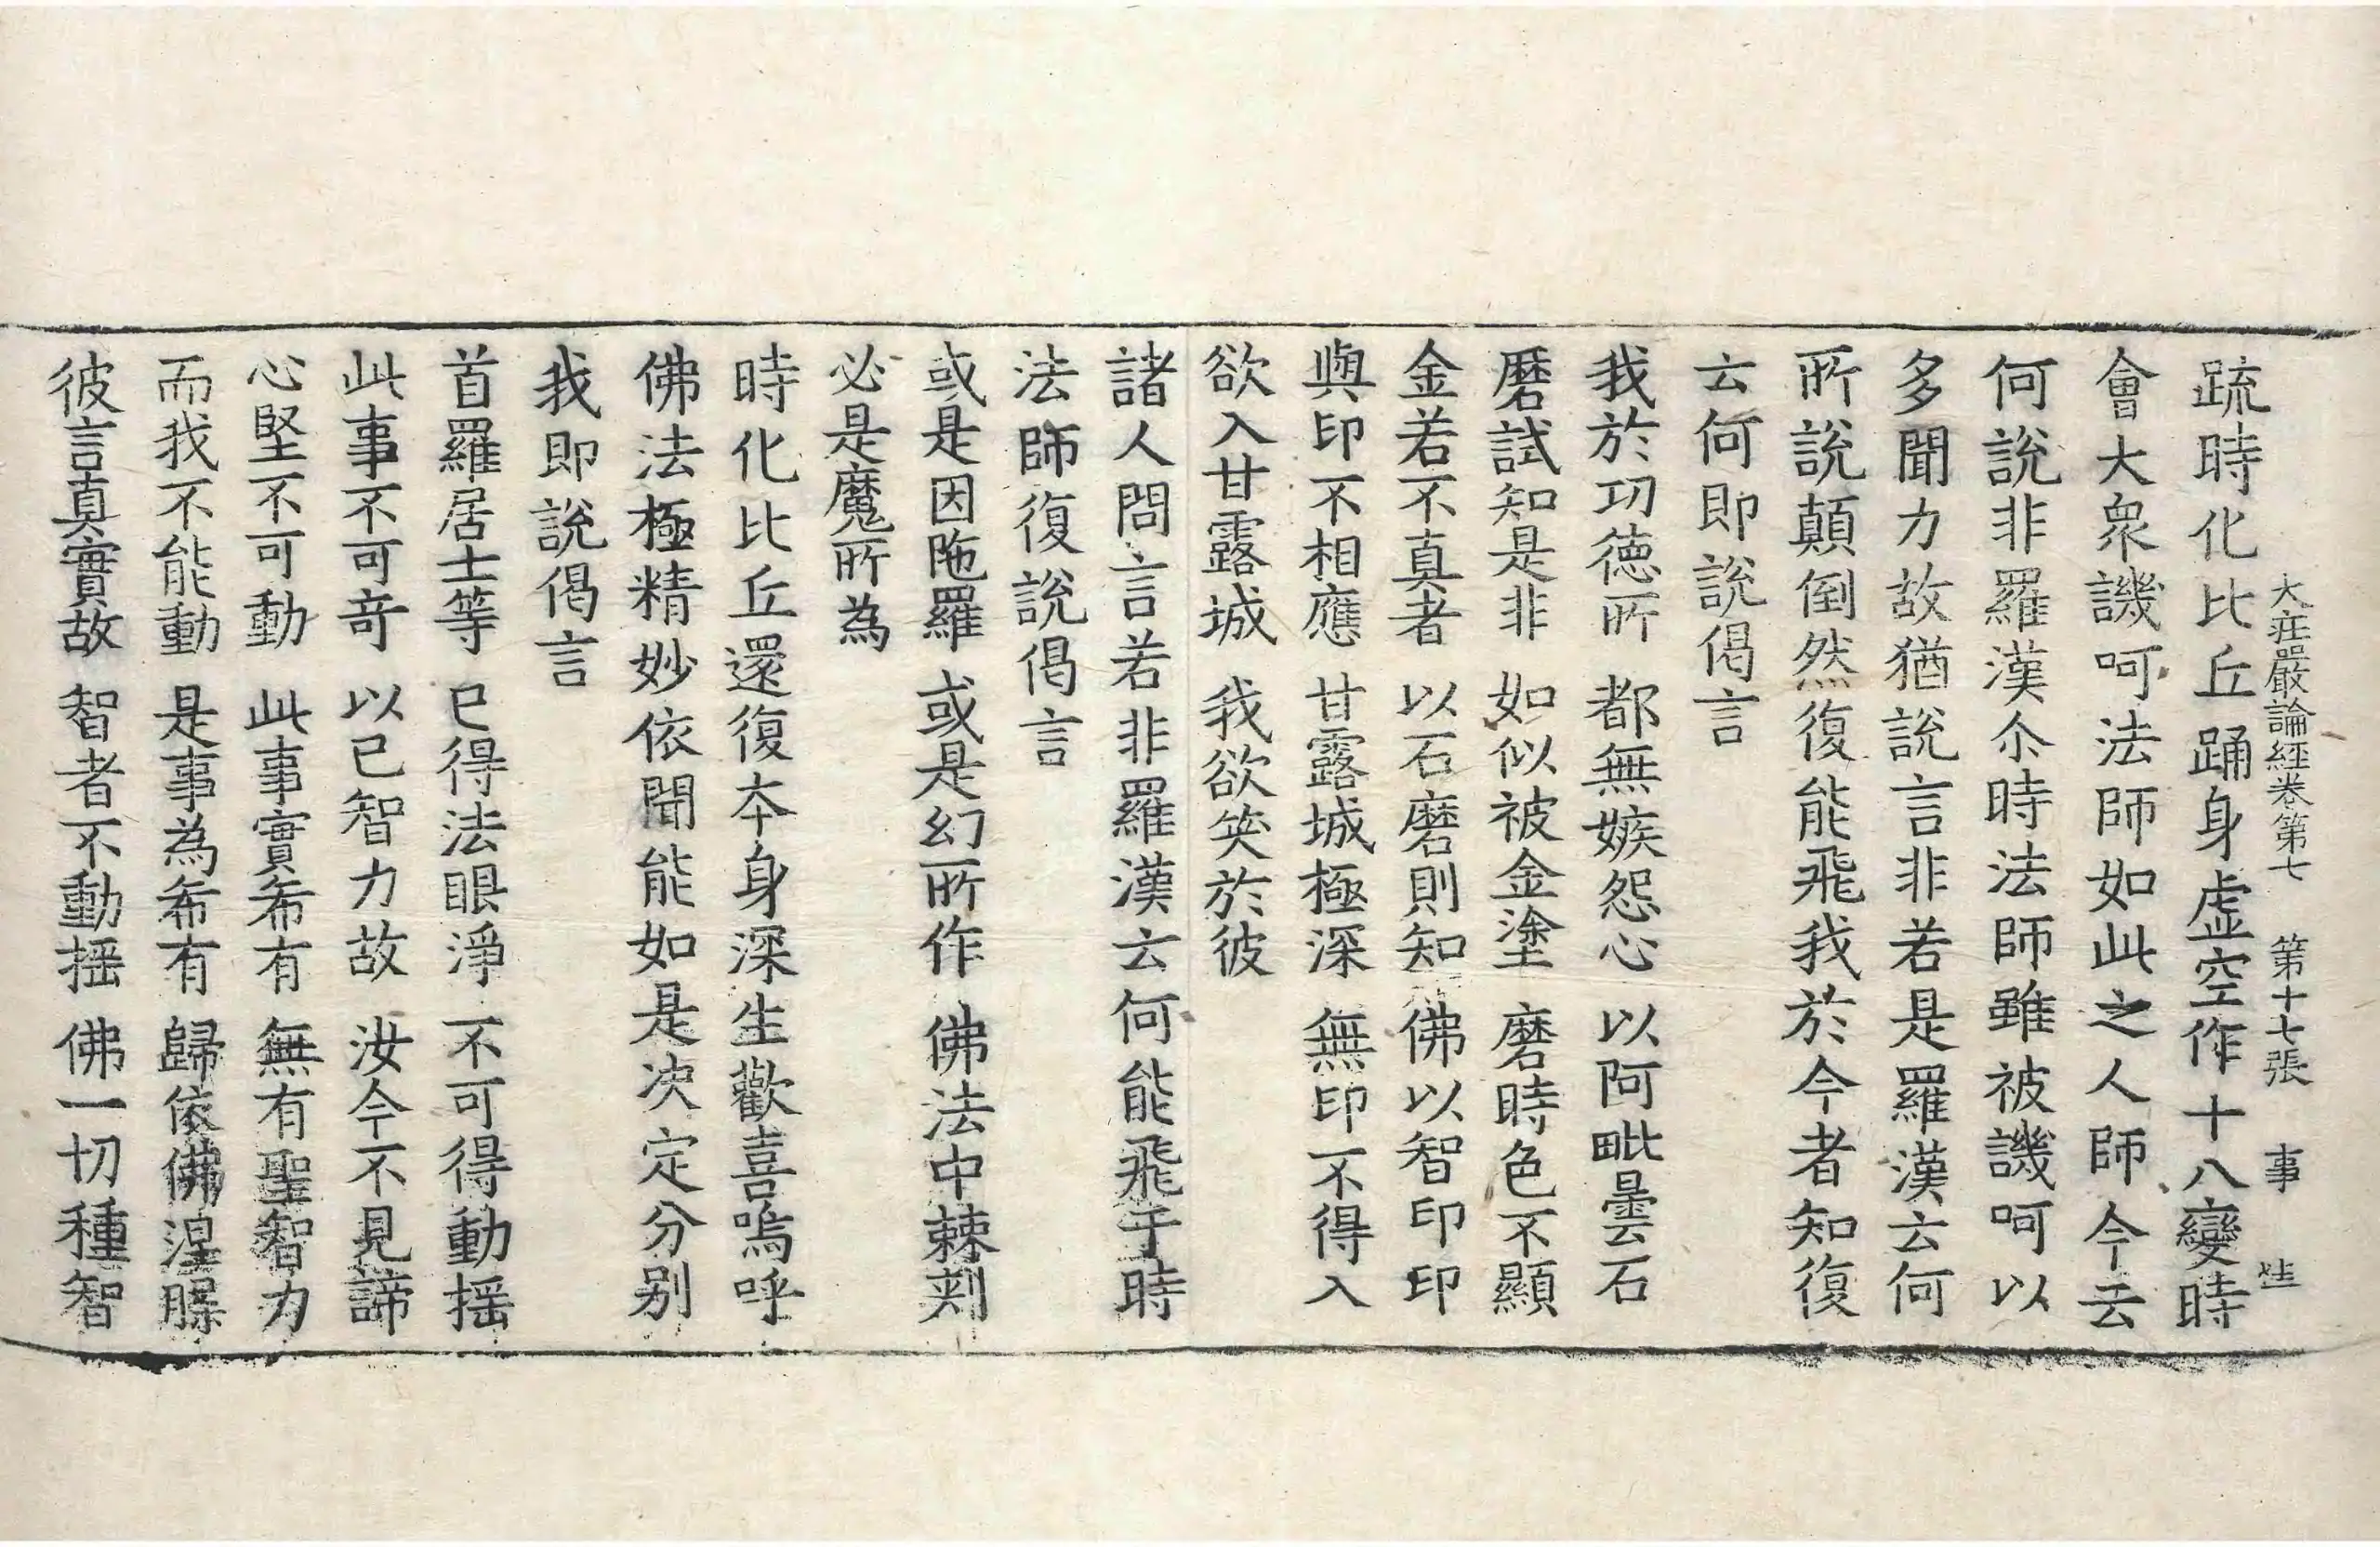 大莊嚴論經卷第七　第十七張　事
䟽時化比丘踊身虛空作十八變時
會大衆譏呵法師如此之人師今云
何說非羅漢尒時法師雖被譏呵以
多聞力故猶說言非若是羅漢云何
所說顛倒然復能飛我於今者知復
云何即說偈言
我於功德所　都無嫉怨心　以阿毗曇石
磨試知是非　如似被金塗　磨時色不顯
金若不真者　以石磨則知　佛以智印印
與印不相應　甘露城極深　無印不得入
欲入甘露城　我欲笑於彼
諸人問言若非羅漢云何能飛于時
法師復說偈言
或是因陁羅　或是幻所作　佛法中棘刺
必是魔所為
時化比丘還復本身深生歡喜嗚呼
佛法極精妙依聞能如是决定分别
我即說偈言
首羅居士等　已得法眼淨　不可得動揺
此事不可奇　以己智力故　汝今不見諦
心堅不可動　此事實希有　無有聖智力
而我不能動　是事為希有　歸依佛涅𣎆
彼言真實故　智者不動揺　佛一切種智